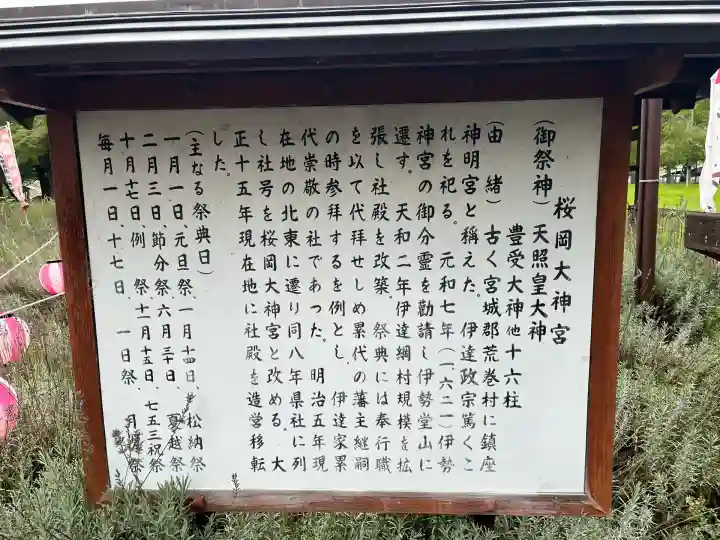 桜岡大神宮
（御祭神）天照皇大神
豊受大神他十六柱
（由　緒）古く宮城郡荒巻村に鎮座
神明宮と称えた。伊達政宗篤くこ
れを祀る。元和七年（一六二一）伊勢
神宮の御分霊を勧請し伊勢堂山に
遷す。天和二年伊達綱村規模を拡
張し社殿を改築、祭典には奉行職
を以て代拝せしめ累代の藩主継嗣
の時参拝するを例とし、伊達家累
代崇敬の社であった。明治五年現
在地の北東に遷り同八年県社に列
し社号を桜岡大神宮と改める。大
正十五年現在地に社殿を造営移転
した。
（主なる祭典日）
一月一日、元旦祭　一月十四日、松納祭
二月三日、節分祭　六月三十日、夏越祭
十月十七日、例　祭　十一月十五日、七五三祝祭
毎月一日、十七日、一日祭、月次祭